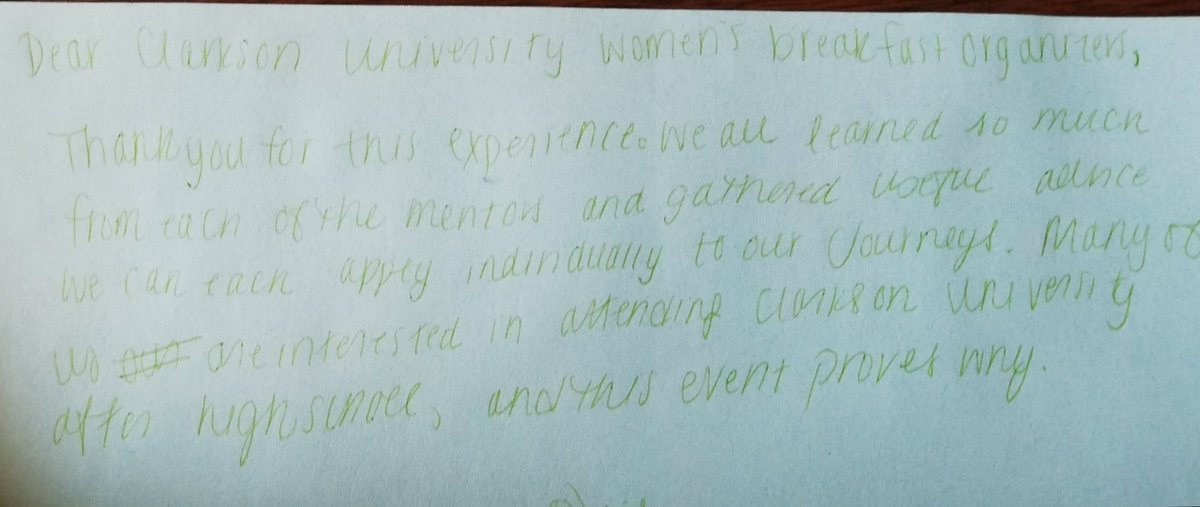 Dear Clarkson University Women's breakfast organizers,
Thank you for this experience. We all learned so much
from each of the mentors and gathered useful advice
we can each apply individually to our journeys. Many of
us are interested in attending Clarkson University
after highschool, and this event proves why.